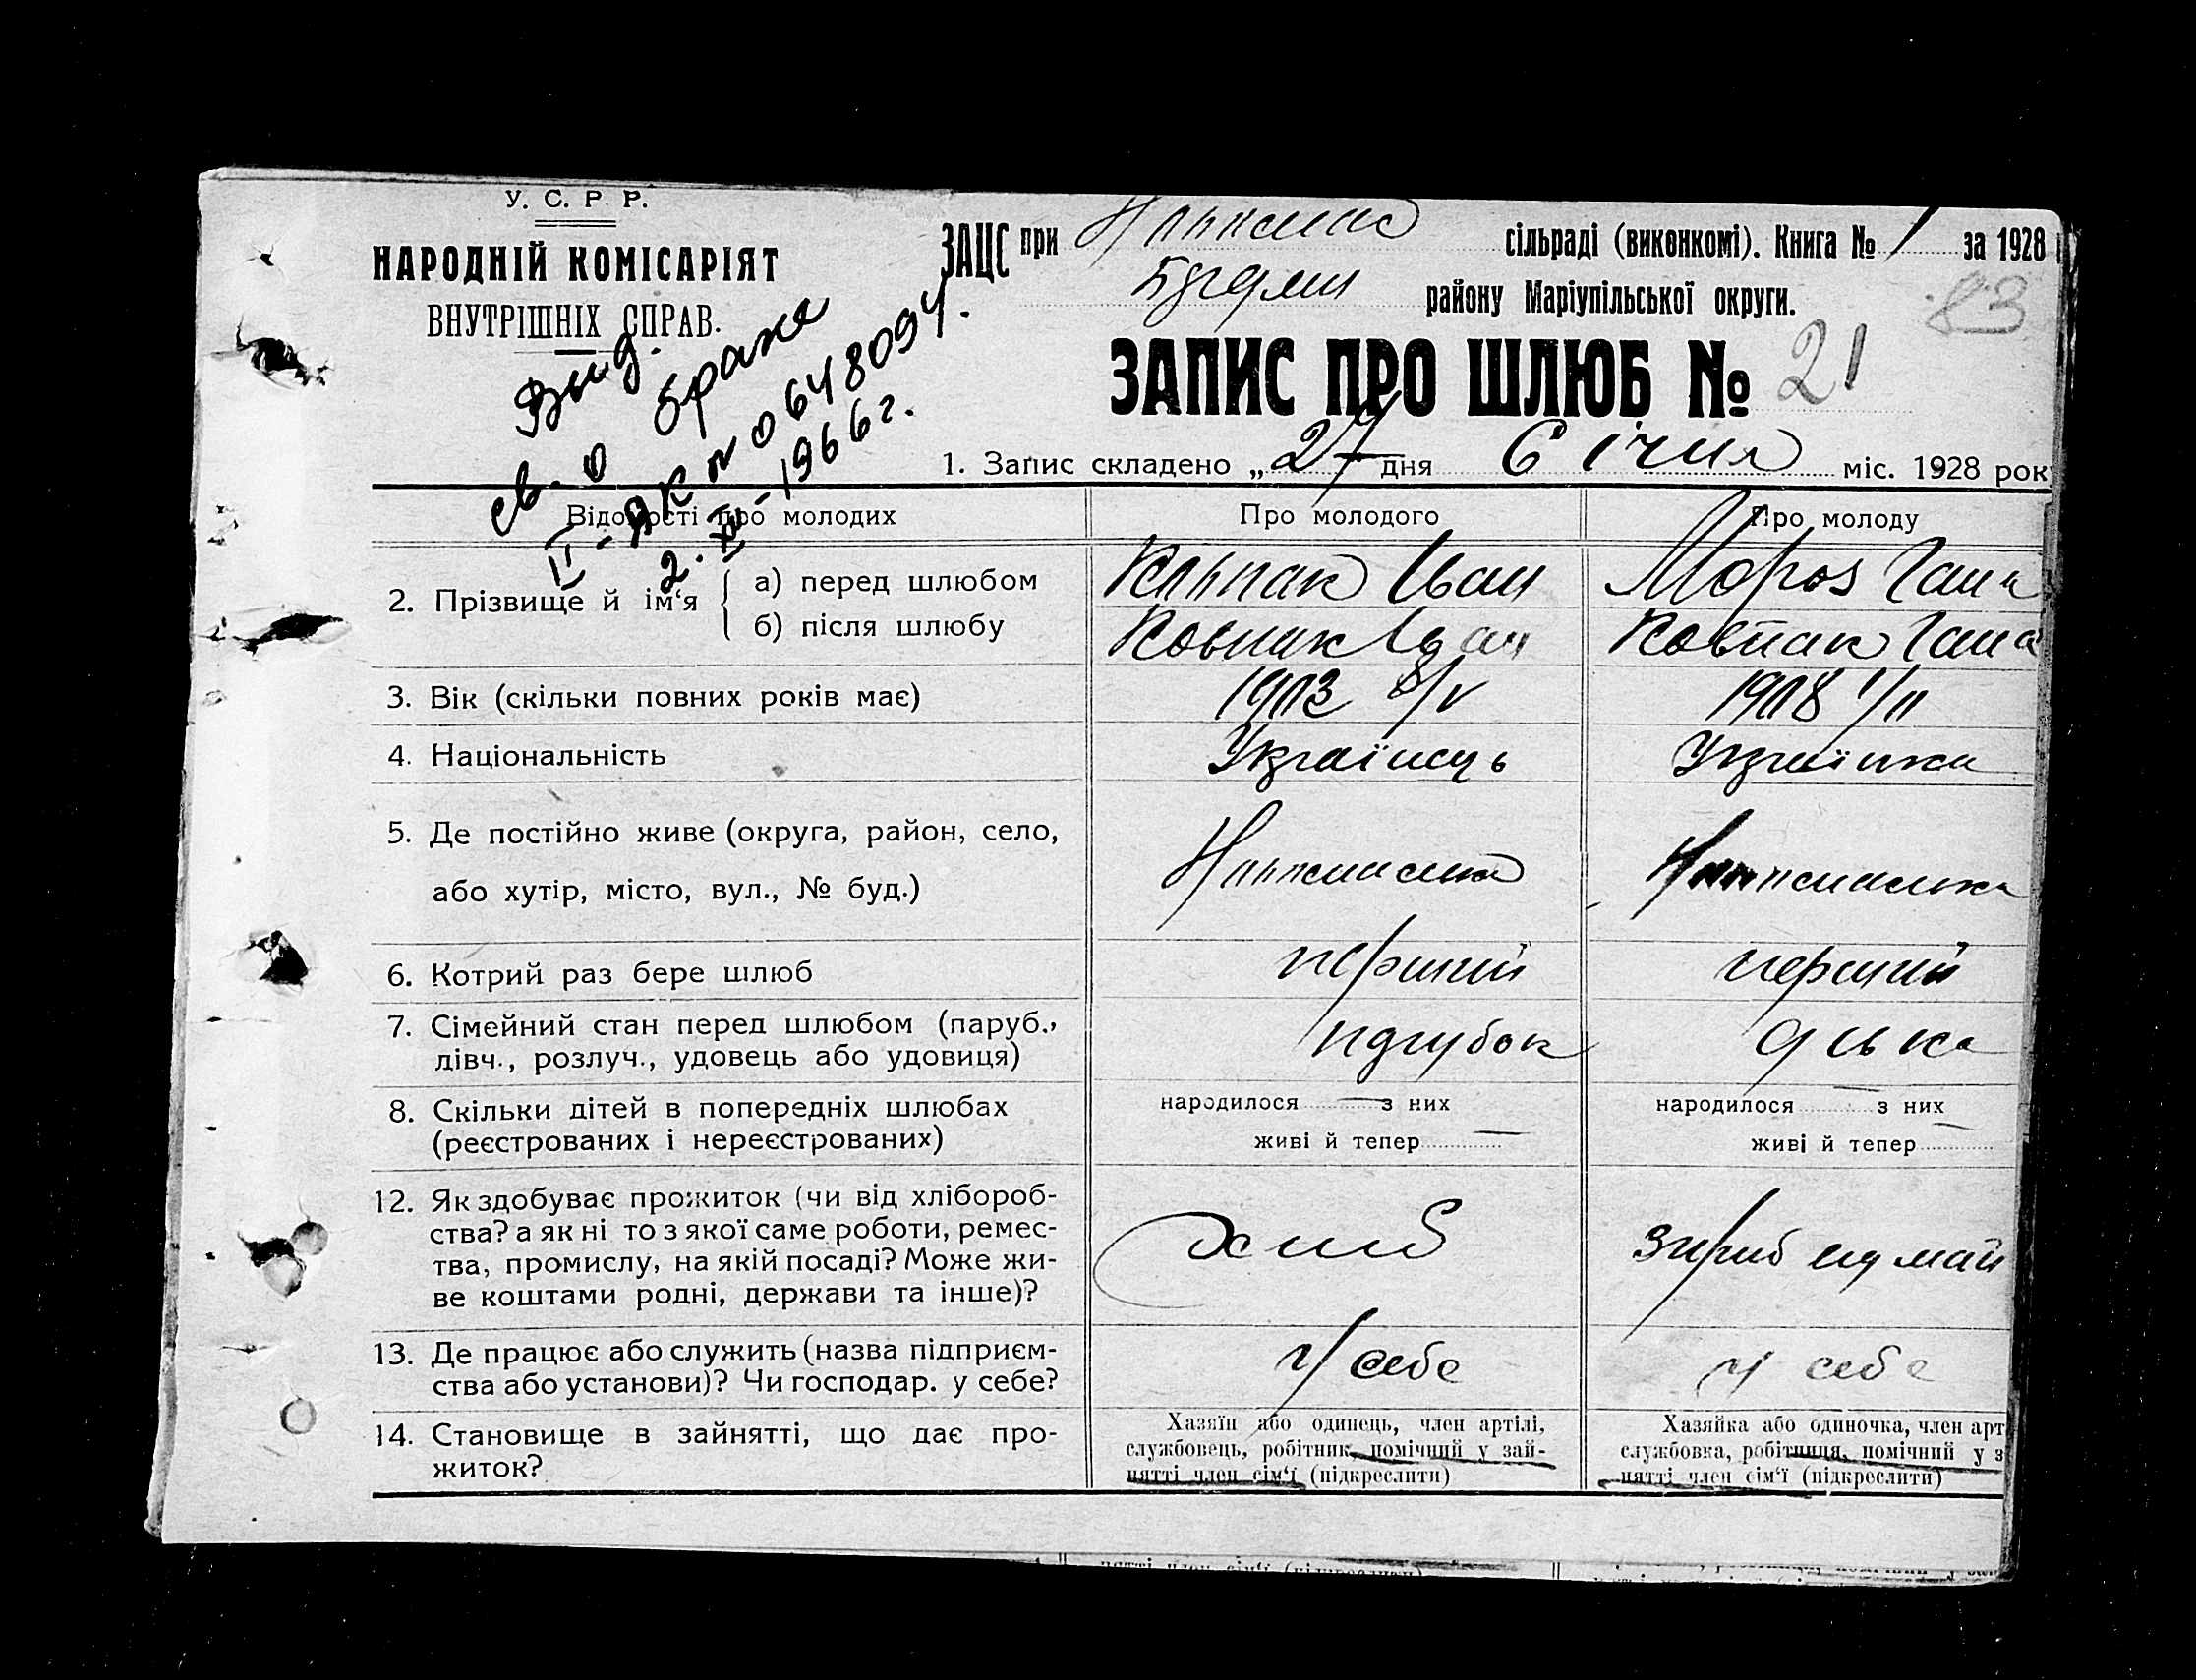 У. С. Р. Р.
НАРОДНІЙ КОМІСАРІЯТ
ВНУТРІШНІХ СПРАВ.
Выд.
св. о браке
II-ЯК № 0648094.
2. XII-1966 г.
ЗАЦС при сільраді (виконкомі). Книга № 1 за 1928
району Маріупільської округи.
83
ЗАПИС ПРО ШЛЮБ № 21
1. Запис складено „27 дня Січня міс. 1928 рок
Відомості про молодих Про молодого Про молоду
2. Прізвище й ім'я { а) перед шлюбом Ковпак Іван Мороз Гана
б) після шлюбу Ковпак Іван Ковпак Гана
3. Вік (скільки повних років має) 1903 8/V 1908 1/II
4. Національність Українець Українка
5. Де постійно живе (округа, район, село,
або хутір, місто, вул., № буд.)
6. Котрий раз бере шлюб перший перший
7. Сімейний стан перед шлюбом (паруб., парубок дівка
дівч., розлуч., удовець або удовиця)
8. Скільки дітей в попередніх шлюбах народилося — з них народилося — з них
(реєстрованих і нереєстрованих) живі й тепер — живі й тепер —
12. Як здобуває прожиток (чи від хлібороб-
ства? а як ні то з якої саме роботи, ремес-
тва, промислу, на якій посаді? Може жи- хліб
ве коштами родні, держави та інше)?
13. Де працює або служить (назва підприєм- у себе у себе
ства або установи)? Чи господар. у себе?
14. Становище в зайнятті, що дає про-
житок?
Хазяїн або одинець, член артілі,
службовець, робітник, помічний у зай-
нятті член сім'ї (підкреслити)
Хазяйка або одиночка, член арт
службовка, робітниця, помічний у з
нятті член сім'ї (підкреслити)